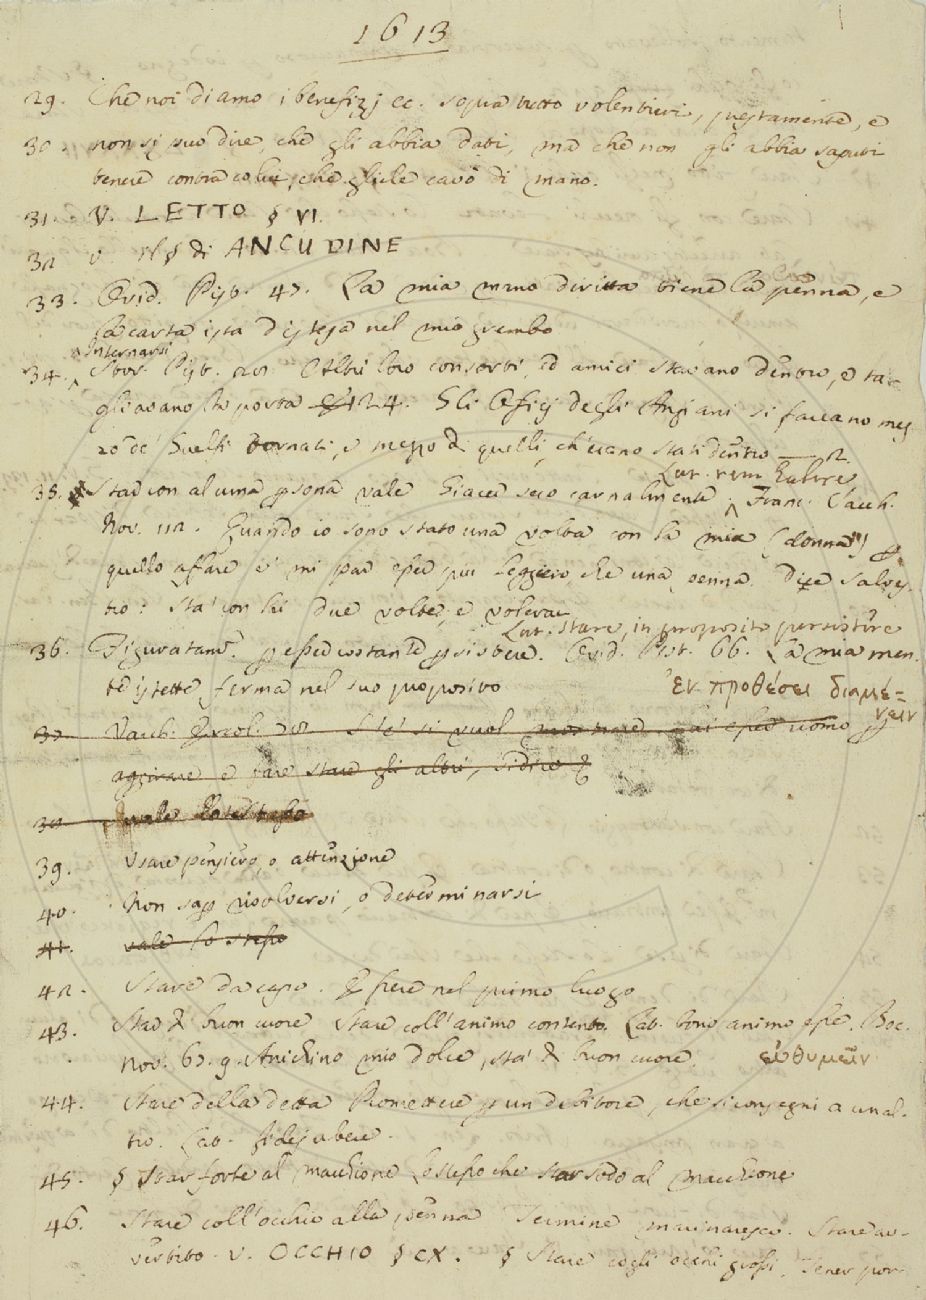 1613
29. Che noi diamo i benefizj ec. sopra tutto volentieri, prestamente, e
30. non si può dire, che gli abbia dati, ma che non gli abbia saputi
tenere contra colui, che gliele cavò di mano.
31. V. LETTO § VI.
32 v. il § di ANCUDINE
33. Ovid. Pist. 47. La mia mano diritta tiene la penna, e
la carta ista distesa nel mio grembo
internarsi
34. Stor. Pist. Altri loro consorti, ed amici stavano dentro, e ta-
gliavano la porta 124. Gli Ofizj degli Anziani si faceano mez
zo de' Guelfi tornati, e mezzo di quelli, ch'erano stati dentro
Lat. rem habere
35. Star con alcuna psona vale Giacer seco carnalmente. Franc. Sacch.
Nov. 112. Quando io sono stato una volta con la mia (donna) p
quello affare e' mi par esser più leggiero che una penna. Dice Salves-
tro: Sta' con lei due volte, e volerai
Lat. stare, in proposito persistere
36. Figuratam. p esser costante persistere. Ovid. Pist. 66. La mia men-
te istette ferma nel suo proposito ἐν προθέσει διαμέ=
νειν
37 Sacch. Stè si vuol uomo p
aggirare e fare stare gli altri,
38 vale lo stesso
39. Usare pensiero, o attenzione
40. Non sap risolversi, o determinarsi
41. vale lo stesso
42. Stare da capo. Essere nel primo luogo
43. Star di buon cuore Stare coll'animo contento. Lat. bono animo esse. Boc.
Nov. 67. 9. Anichino mio dolce, sta' di buon cuore. εὐθυμεῖν
44. Stare della detta Promettere p un debitore, che si consegni a un al-
tro. Lat. fidejubere.
45. § Star forte al macchione Lo stesso che star sodo al macchione
46. Stare coll'occhio alla penna Termine marinaresco. Stare av-
vertito. v. OCCHIO § CX. § Stare cogli occhi grossi, Tener por-